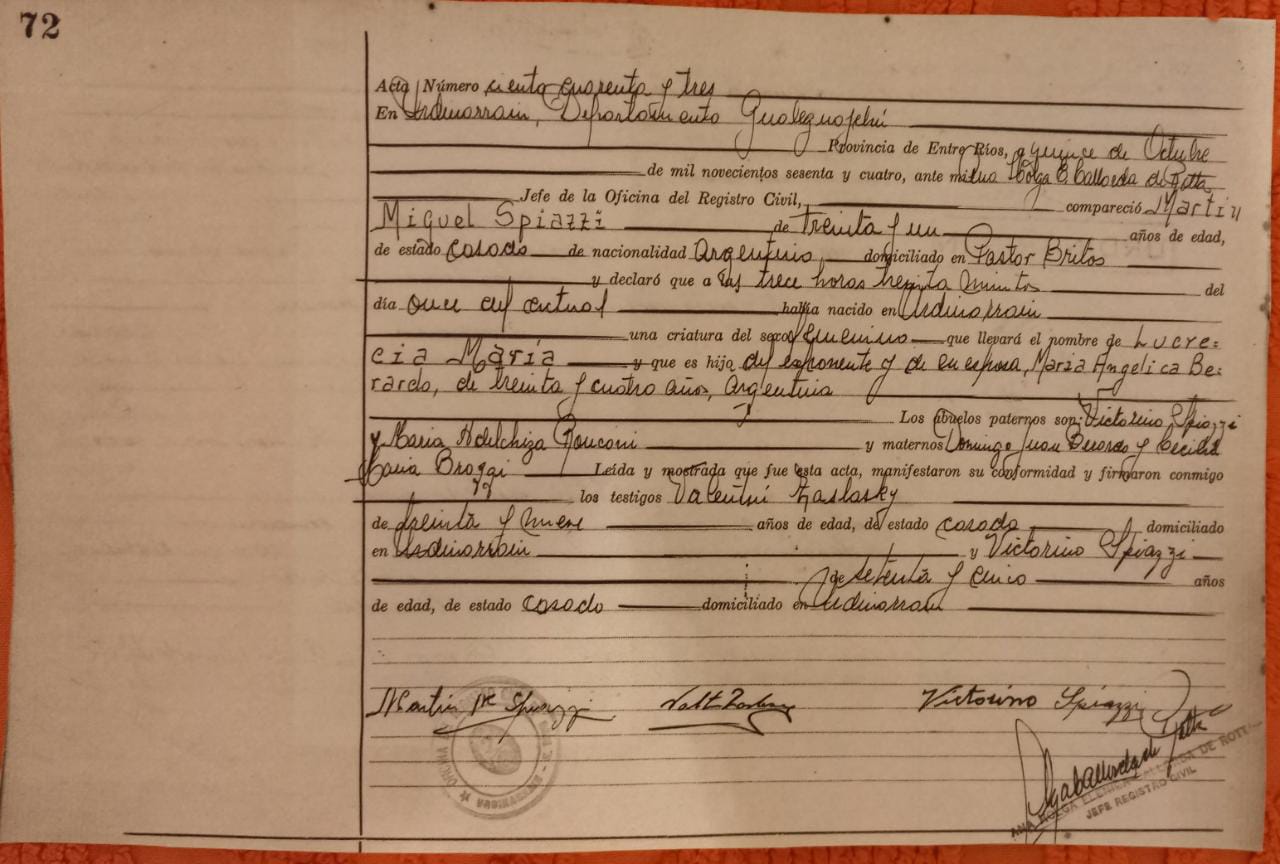 72
Acta Número ciento cuarenta y tres
En Urdinarrain, Departamento Gualeguaychú
Provincia de Entre Ríos, a quince de Octubre
de mil novecientos sesenta y cuatro, ante mi Ana Holga E. Callorda de Rotta
Jefe de la Oficina del Registro Civil, compareció Martín
Miguel Spiazzi de treinta y un años de edad,
de estado casado de nacionalidad Argentino, domiciliado en Pastor Britos
y declaró que a las trece horas treinta minutos del
día once del actual había nacido en Urdinarrain
una criatura del sexo femenino que llevará el nombre de Lucre=
cia María y que es hijo del exponente y de su esposa, María Angelica Be=
rardo, de treinta y cuatro años, Argentina
Los abuelos paternos son: Victorino Spiazzi
y Maria Adelchiza Ronconi y maternos Domingo Juan Berardo y Cecilia
Maria Broggi Leída y mostrada que fue esta acta, manifestaron su conformidad y firmaron conmigo
los testigos Valentín Zaslasky
de treinta y nueve años de edad, de estado casado, domiciliado
en Urdinarrain y Victorino Spiazzi
de setenta y cinco años
de edad, de estado casado domiciliado en Urdinarrain
Martin M Spiazzi Victorino Spiazzi
URDINARRAIN
DE ROTTA
JEFE REGISTRO CIVIL